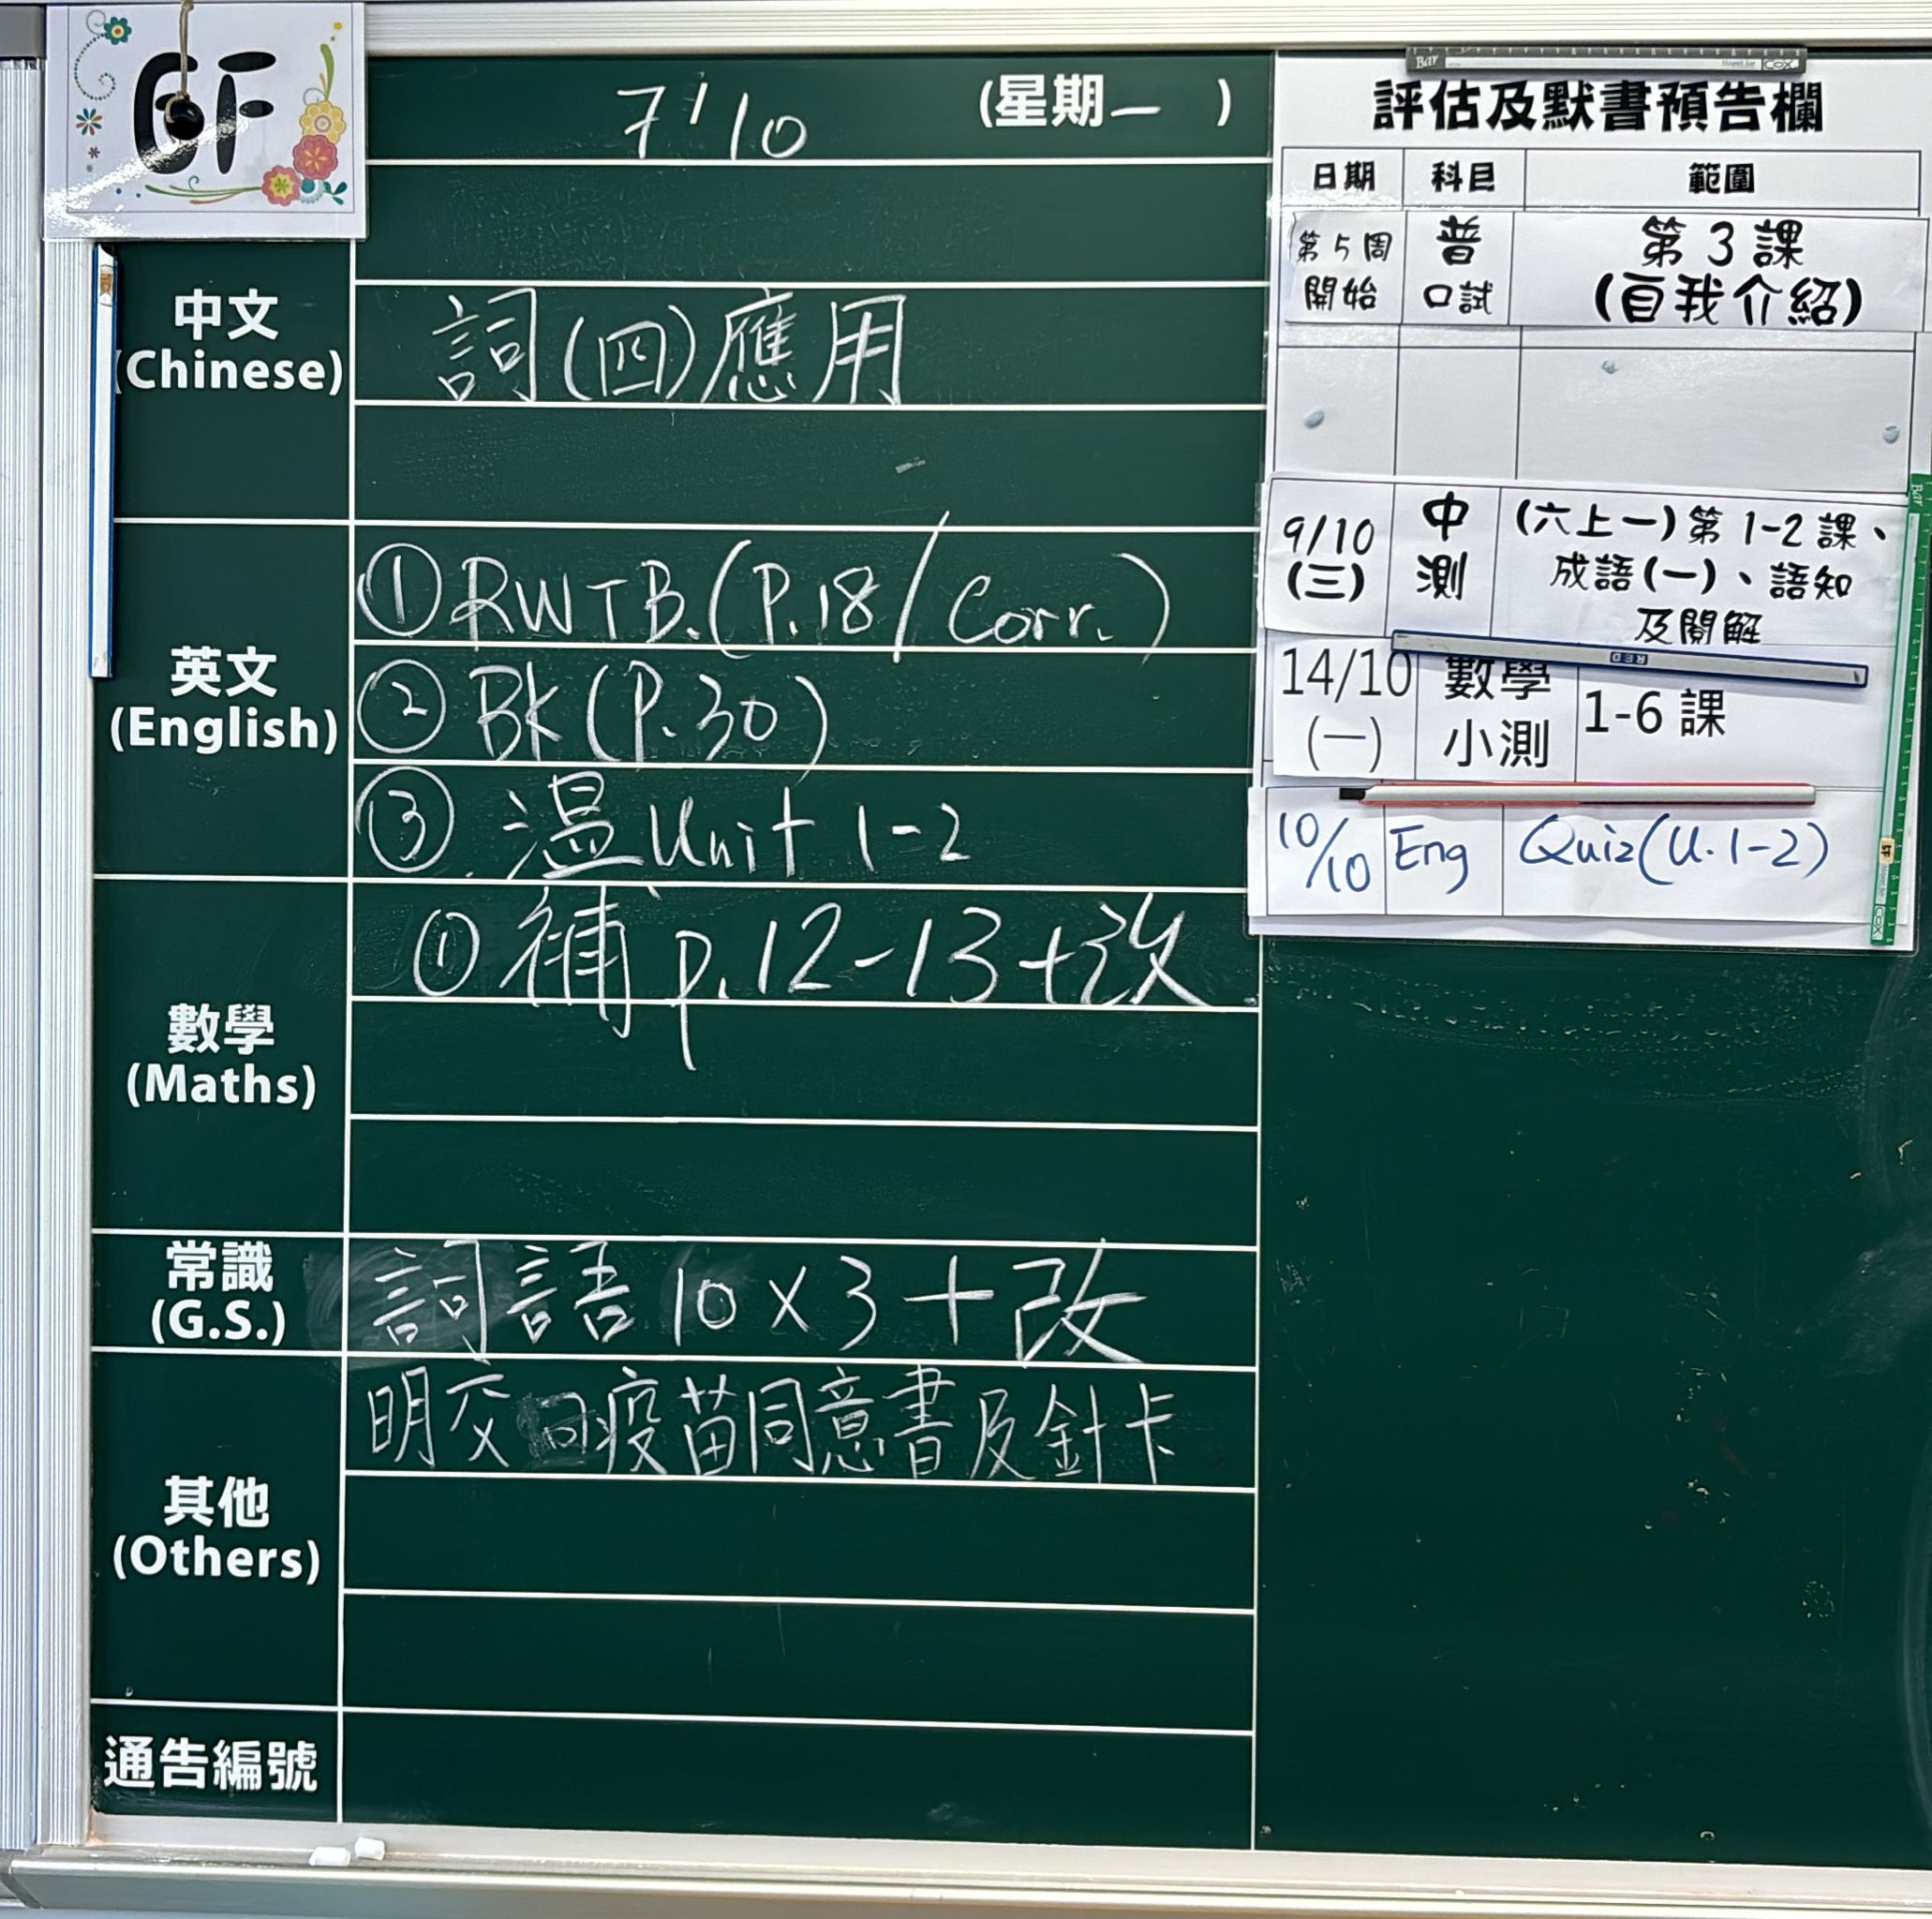 6F
7/10 (星期一 )
中文
(Chinese)
詞(四)應用
英文
(English)
①RWTB.(P.18/Corr.)
②BK(P.30)
③.温Unit 1-2
數學
(Maths)
①補p.12-13+改
常識
(G.S.)
詞語10x3+改
其他
(Others)
明交回疫苗同意書及針卡
通告編號
評估及默書預告欄
日期 科目 範圍
第5周
開始
普
口試
第3課
(自我介紹)
9/10
(三)
中
測
(六上一)第1-2課、
成語(一)、語知
及閱解
14/10
(一)
數學
小測
1-6課
10/10 Eng Quiz(U.1-2)
Bar
COX
RED
Bar
COX